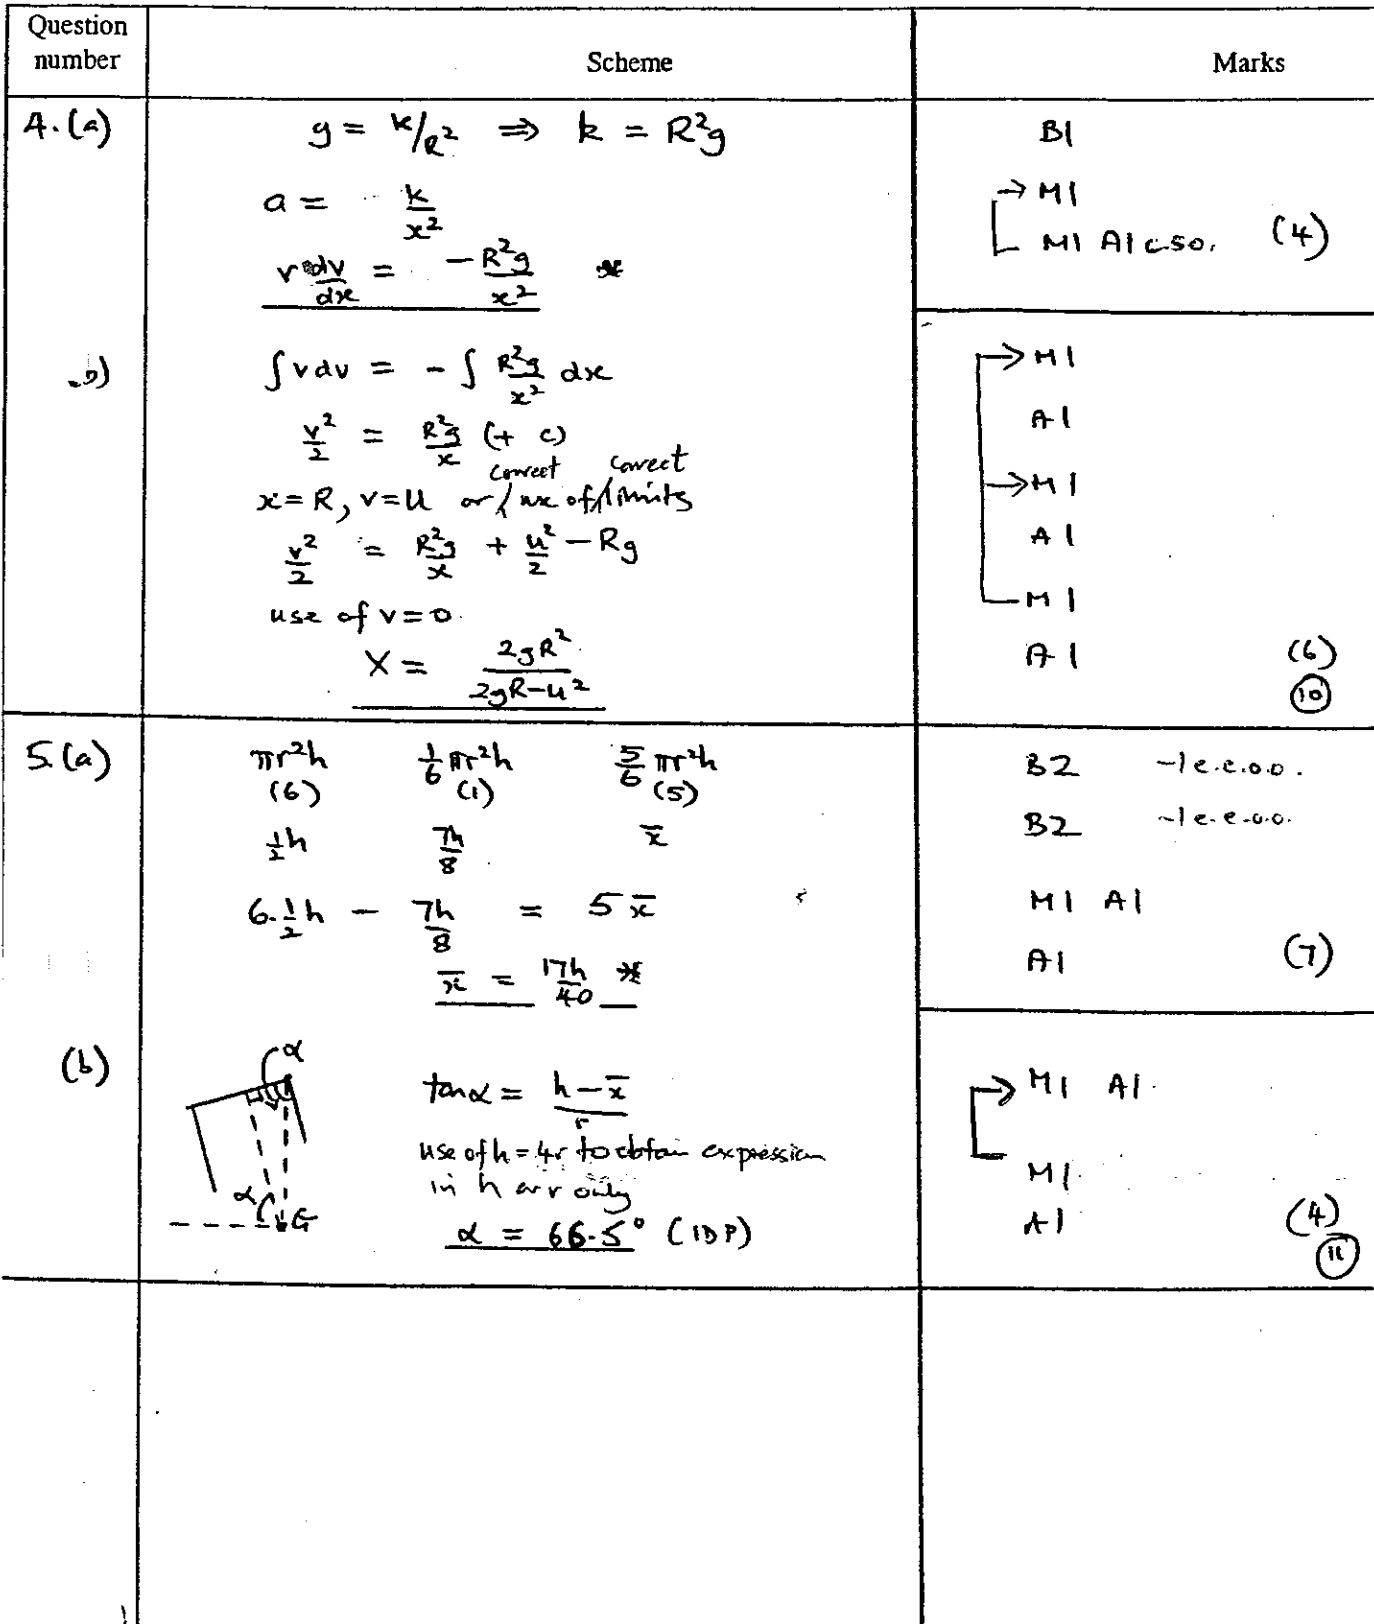 Question number Scheme Marks
4.(a) g = k/R² ⇒ k = R²g B1
a = k/x² → M1
v dv/dx = -R²g/x² * M1 A1 c.s.o. (4)
∫v dv = - ∫ R²g/x² dx → M1
v²/2 = R²g/x (+ c) A1
correct correct
x = R, v = u or / use of / limits → M1
v²/2 = R²g/x + u²/2 - Rg A1
use of v = 0 M1
X = 2gR²/(2gR-u²) A1 (6)
(10)
5.(a) πr²h 1/6 πr²h 5/6 πr²h B2 -1 e.e.o.o.
(6) (1) (5)
½h 7h/8 x̄ B2 -1 e.e.o.o.
6.½h - 7h/8 = 5x̄ M1 A1
x̄ = 17h/40 * A1 (7)
(b) α tanα = (h-x̄)/r → M1 A1
use of h = 4r to obtain expression
in h or r only M1
α G α = 66.5° (1DP) A1 (4)
(11)